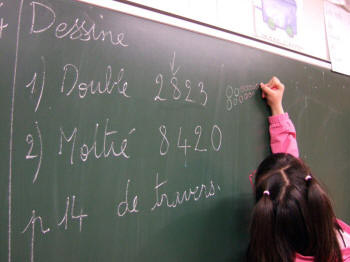 Dessine
1) Double 2823
2) Moitié 8420
p. 14 de travers.